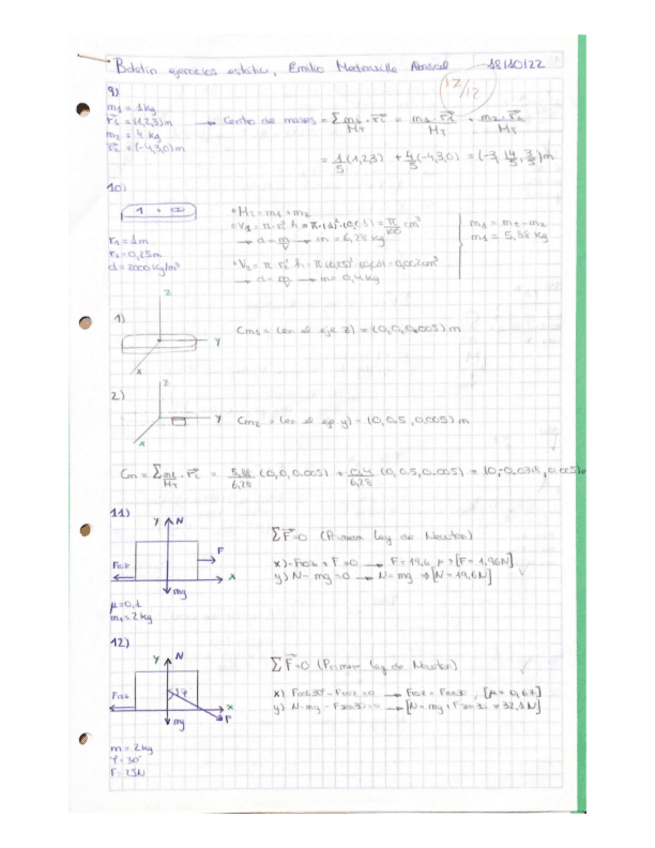 Boletín ejercicios estática, Emilio 18/10/22
12/12
9)
m₁ = 1 kg
r₁ = (1,2,3) m
m₂ = 4 kg
r₂ = (-4,3,0) m
→ Centro de masas = Σ mᵢ/M_T · rᵢ = m₁·r₁/M_T + m₂·r₂/M_T
= 1/5 (1,2,3) + 4/5 (-4,3,0) = (-3, 14/5, 3/5) m
10)
r₁ = 1m
r₂ = 0,25m
d = 2000 kg/m³
M_T = m₁ + m₂
V₁ = π · r² · h = π·(1)²·(0,01) = π/100 m³
→ d = m/V → m = 6,28 kg
V₂ = π · r₂² · h = π (0,25)² (0,01) = 0,002 m³
→ d = m/V → m = 0,4 kg
m₁ = m_T - m₂
m₁ = 5,88 kg
1)
z
y
x
Cm₁ = (en el eje z) = (0,0,0,005) m
2)
z
y
x
Cm₂ = (en el eje y) = (0, 0,5, 0,005) m
Cm = Σ mᵢ/M_T · rᵢ = 5,88/6,28 (0,0,0.005) + 0,4/6,28 (0, 0,5, 0.005) = (0, -0.0318, 0,005) m
11)
y N
F
Froz
x
mg
μ = 0,1
m = 2 kg
ΣF = 0 (Primera Ley de Newton)
x) -Froz + F = 0 → F = 19,6 · μ → [F = 1,96N]
y) N - mg = 0 → N = mg → [N = 19,6N]
12)
y N
Froz
φ
x
F
mg
m = 2 kg
φ = 30°
F = 25N
ΣF = 0 (Primera Ley de Newton)
x) Fcos30° - Froz = 0 → Froz = Fcos30, [μ = 0,67]
y) N - mg - Fsen30 = 0 → [N = mg + Fsen30 = 32,1N]